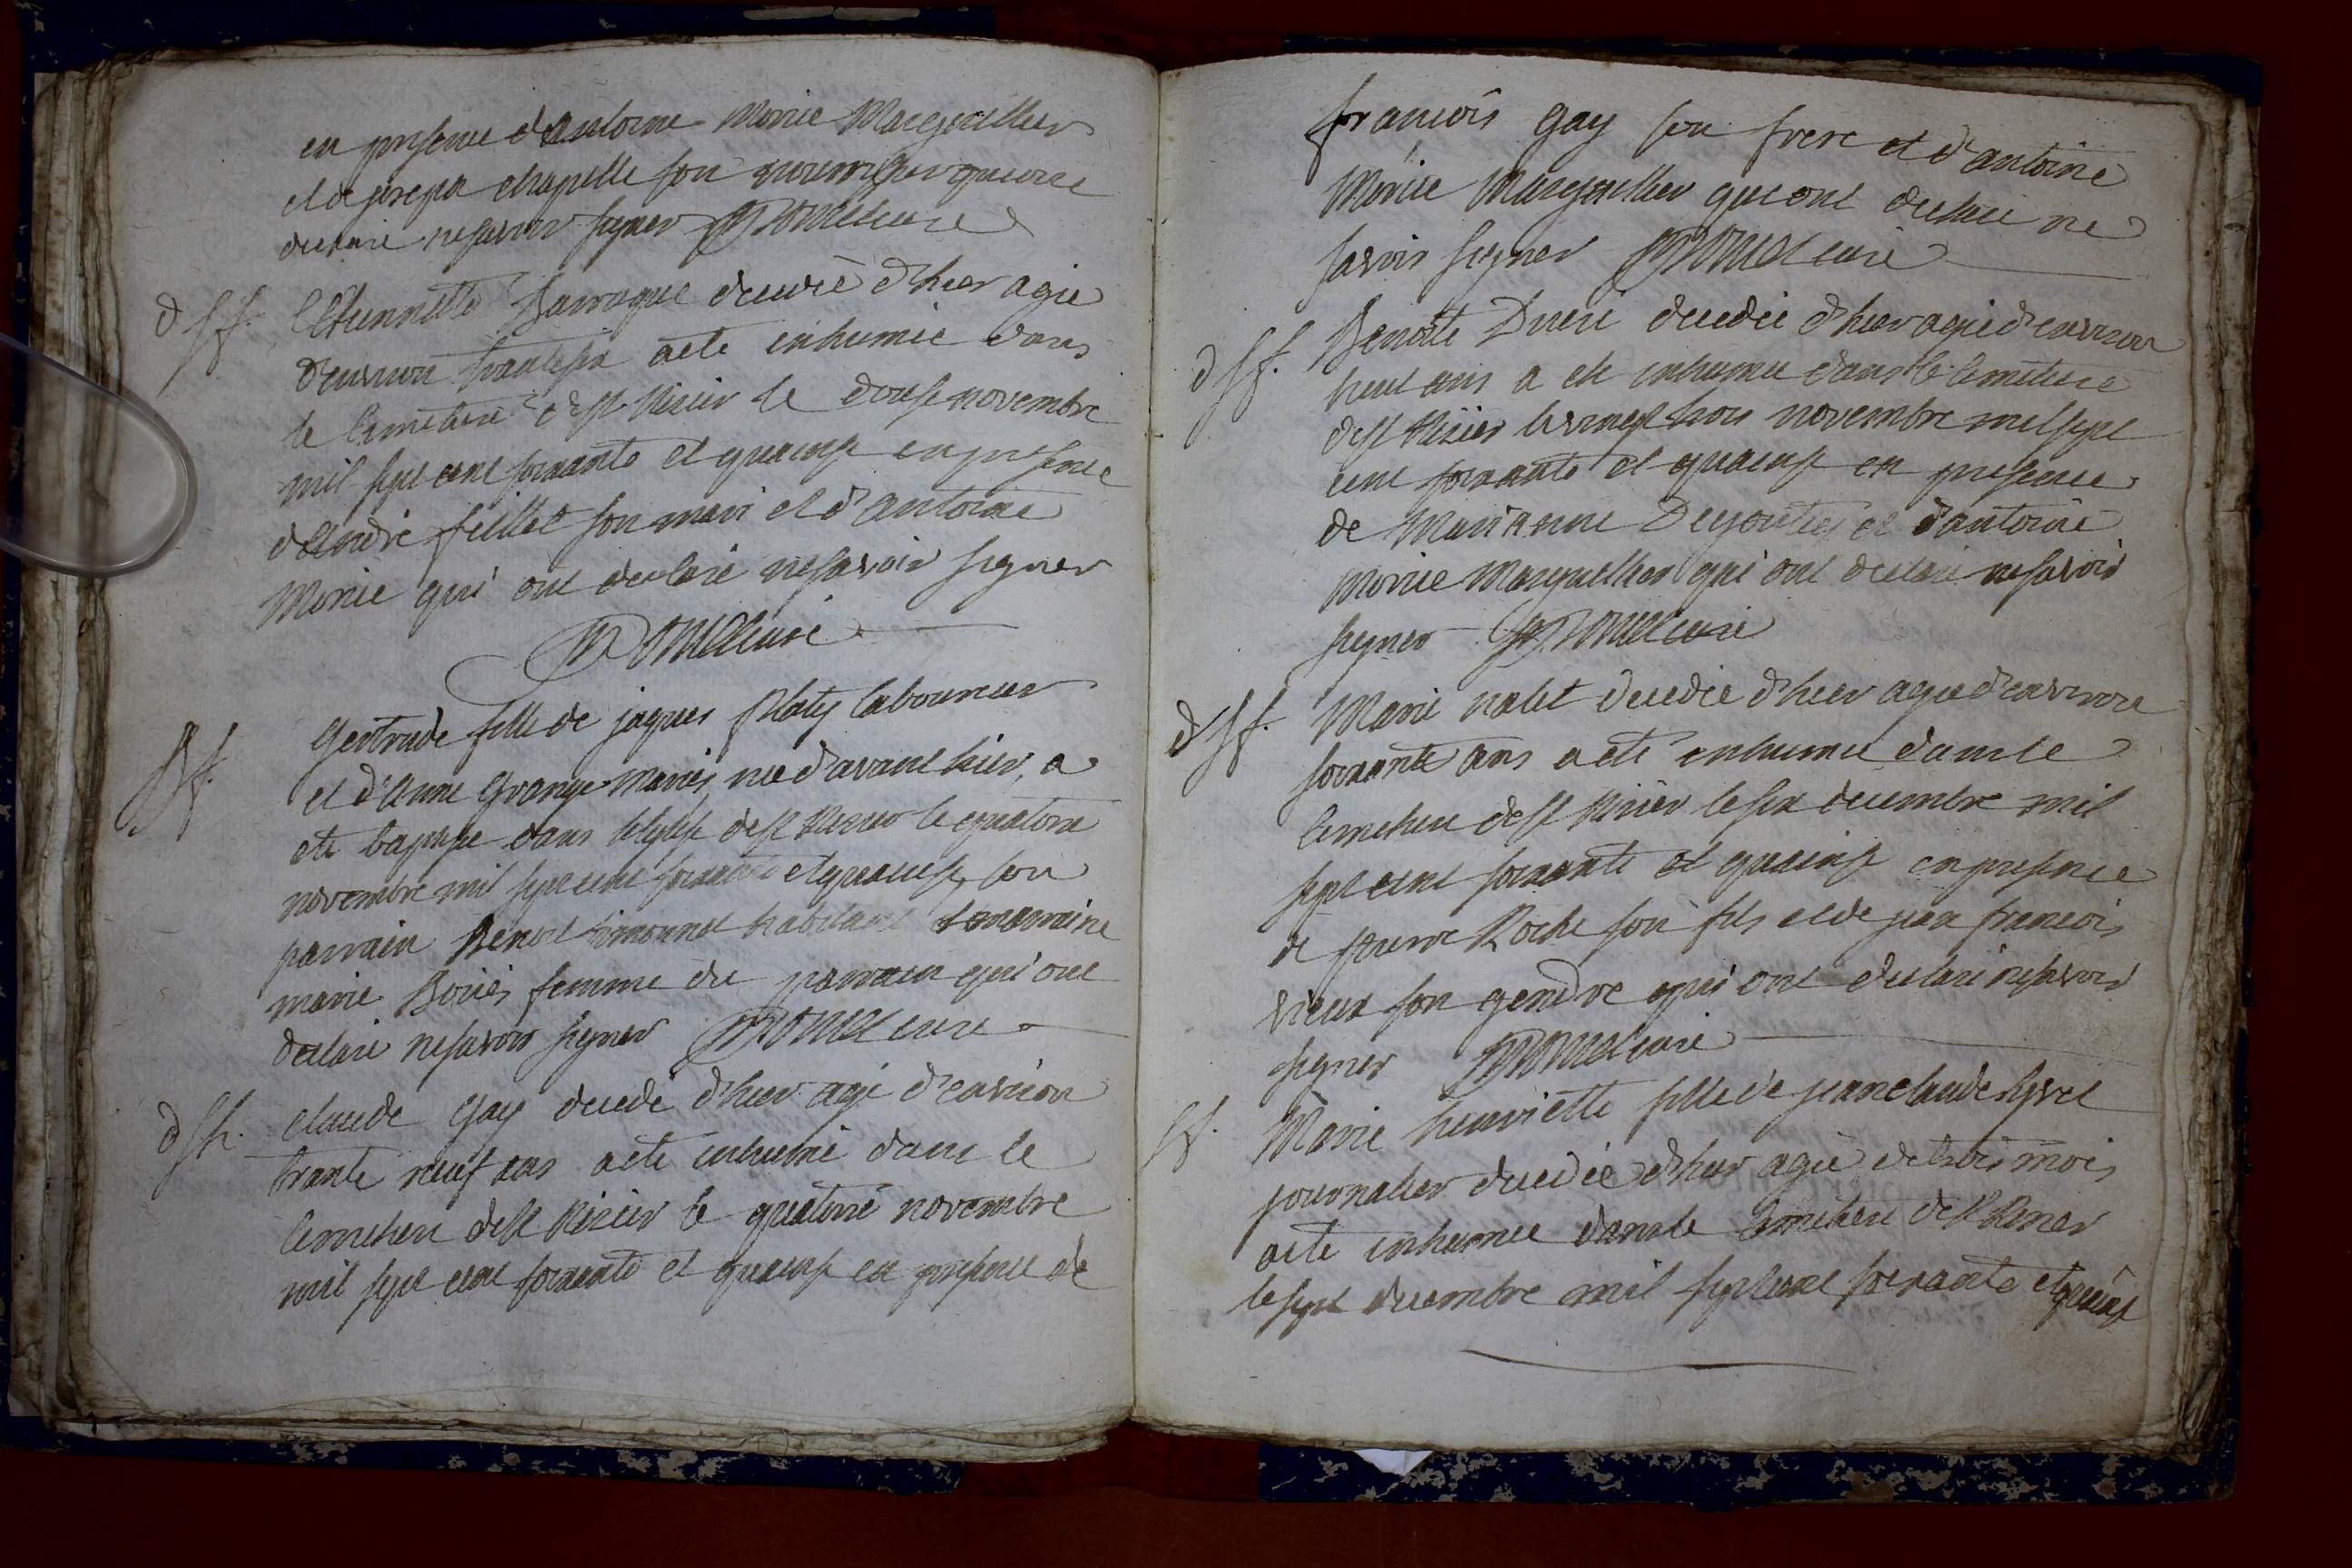 en presence d'antoine Morice Marguillier
et de joseph chapelle son nourricier qui ont
declaré ne savoir signer curé
d sf. Etiennette Barroque decedée d'hier agée
d'environ trante six a eté inhumée dans
le Cimetiere de St Nisier le douse novembre
mil sept cent soixante et quainse en presence
d'andré feillet son mari et d'antoine
Morice qui ont declaré ne savoir signer
curé
Gertrude fille de jaques Platy laboureur
et d'anne Grange mariés, née d'avant hier, a
eté baptisée dans l'eglise de St Nisier le quatorse
novembre mil sept cent soixante et quainse, son
parrain Benoit Simonnet habitant sa marraine
marie Boriés femme du parrain qui ont
declaré ne savoir signer curé
d sh. claude Gay decedé d'hier agé d'environ
trante neuf ans a eté inhumé dans le
Cimetiere de St Nisier le quatorse novembre
mil sept cent soixante et quainse en presence de
françois Gay son frere et d'antoine
Morice Marguillier qui ont declaré ne
savoir signer curé
d sf. Benoite decedée d'hier agée d'environ
huit ans a eté inhumée dans le Cimetiere
de St Nisier le vingt trois novembre mil sept
cent soixante et quainse en presence
de Marianne Degouttes et d'antoine
Morice Marguillier qui ont declaré ne savoir
signer curé
d sf. Marie nalet decedée d'hier agée d'environ
soixante ans a eté inhumée dans le
Cimetiere de St Nisier le six decembre mil
sept cent soixante et quainse en presence
de pierre Roche son fils et de jean francois
vieux son gendre qui ont declaré ne savoir
signer curé
sf. Marie henriette fille de jean claude
journalier decedée d'hier agée de trois mois
a eté inhumée dans le Cimetiere de St Nisier
le sept decembre mil sept cent soixante et quainse